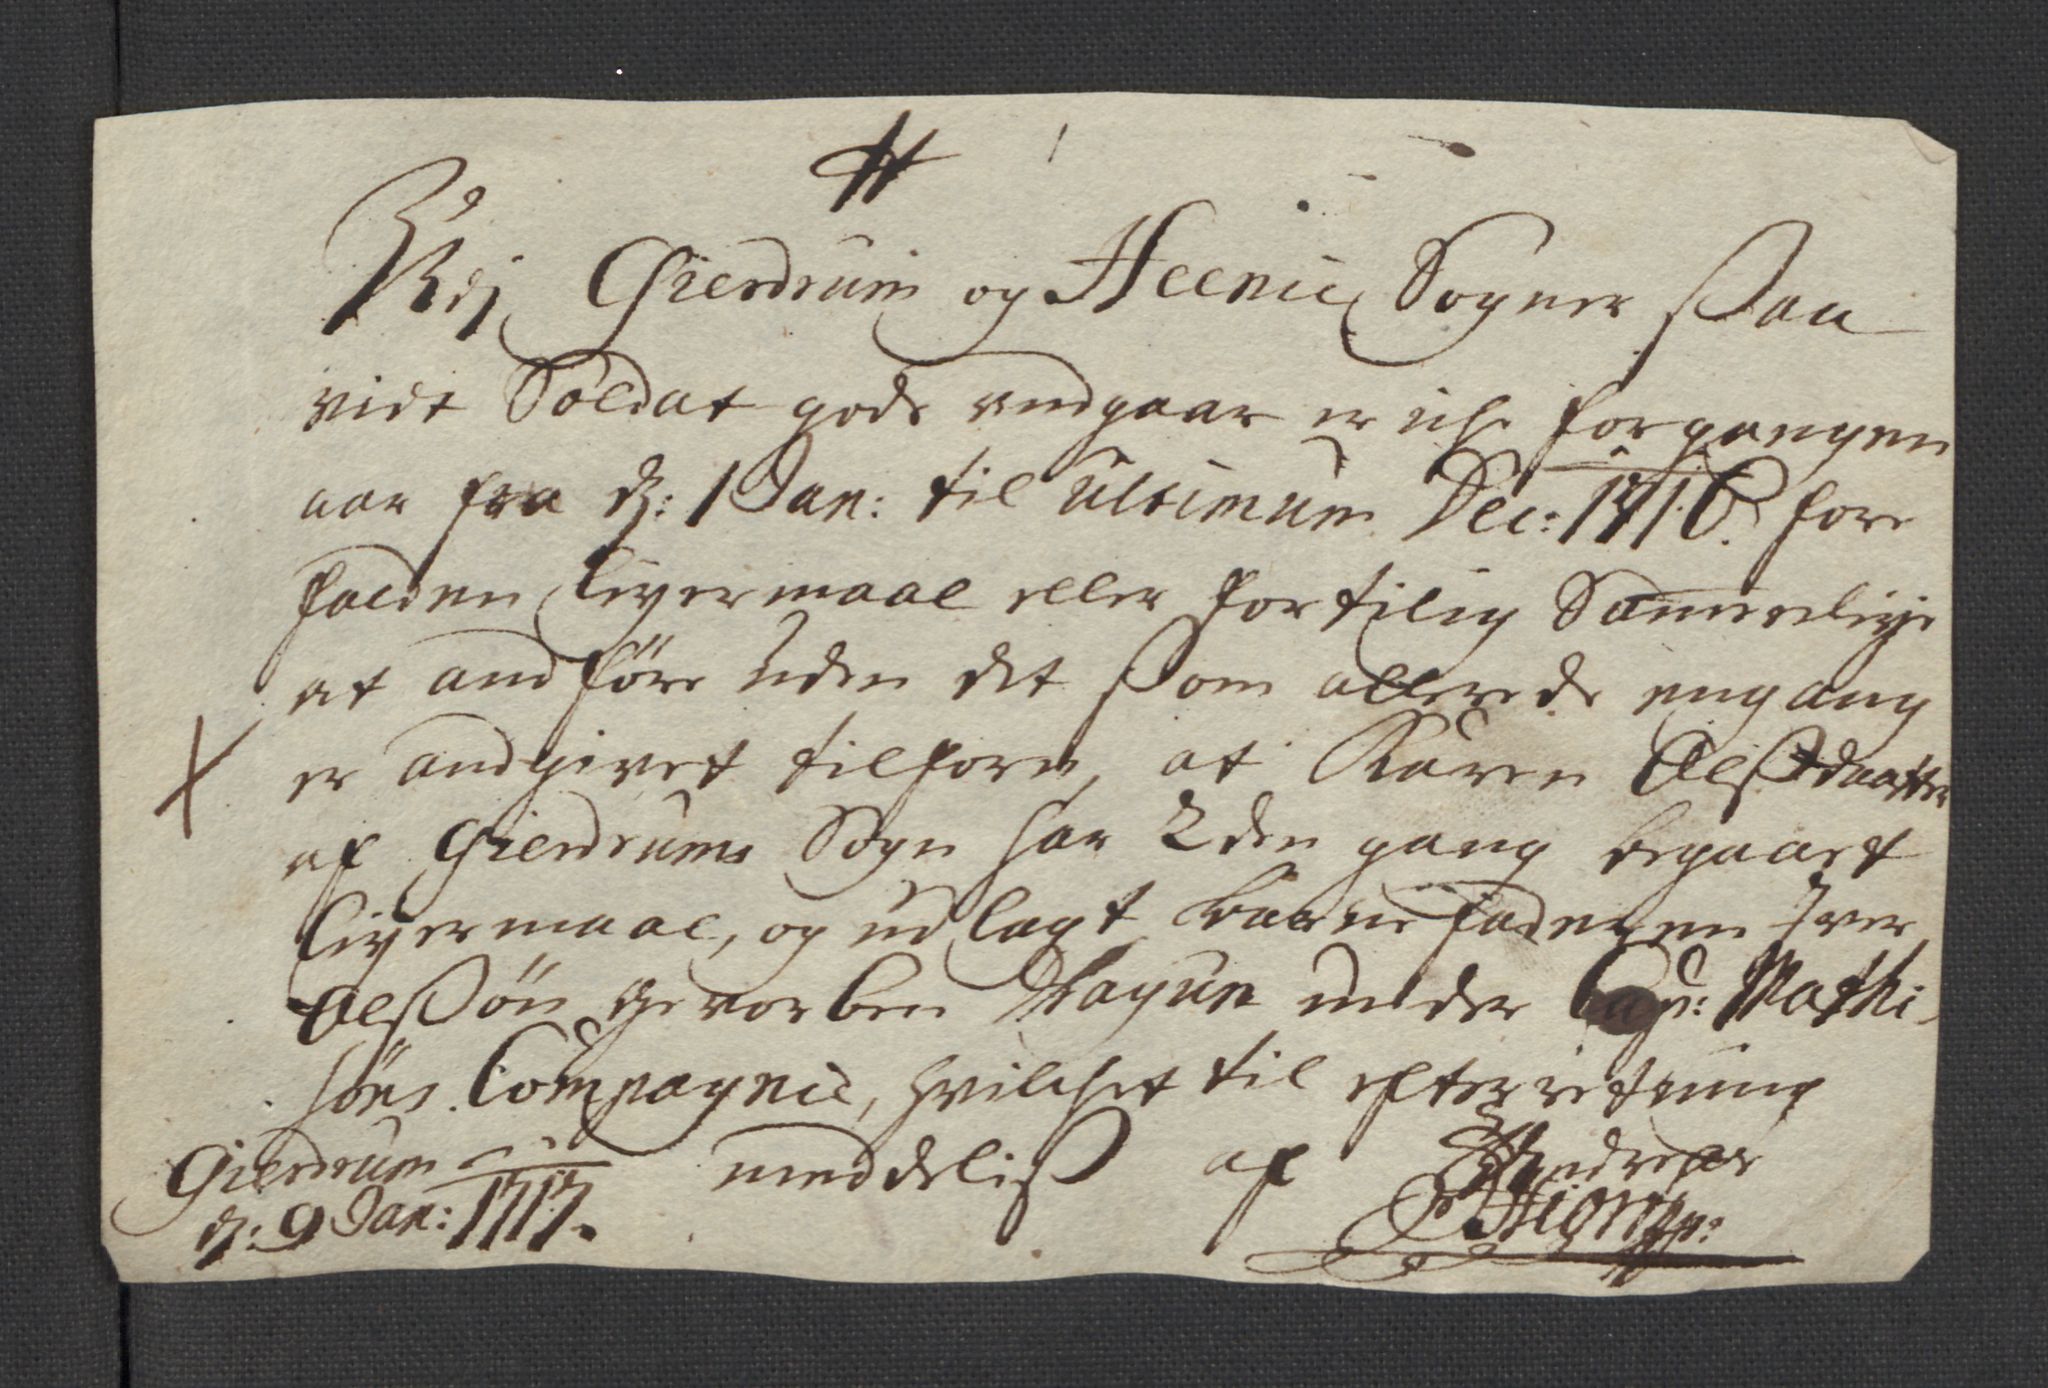 Udj Gierdrum og Heenie Sogner saa
vidt Soldat gods andgaar er iche forgangen
aar fra d: 1 Jan: til ultimum Dec: 1716. fore
falden leyermaal eller for tilig Sammeleye
at andføre uden det som allerede engang
er andgivet tilforn, at Karen Olsdaatter
af Gierdrums Sogn har 2den gang begaaet
leyermaal, og udlagt barne faderen Iver
Olssøn gevorben Dragun under Cap: Mathi-
søns Compagnie, hvilchet til efterretning
Gierdrum meddelis af Andreas
d: 9 Jan: 1717.